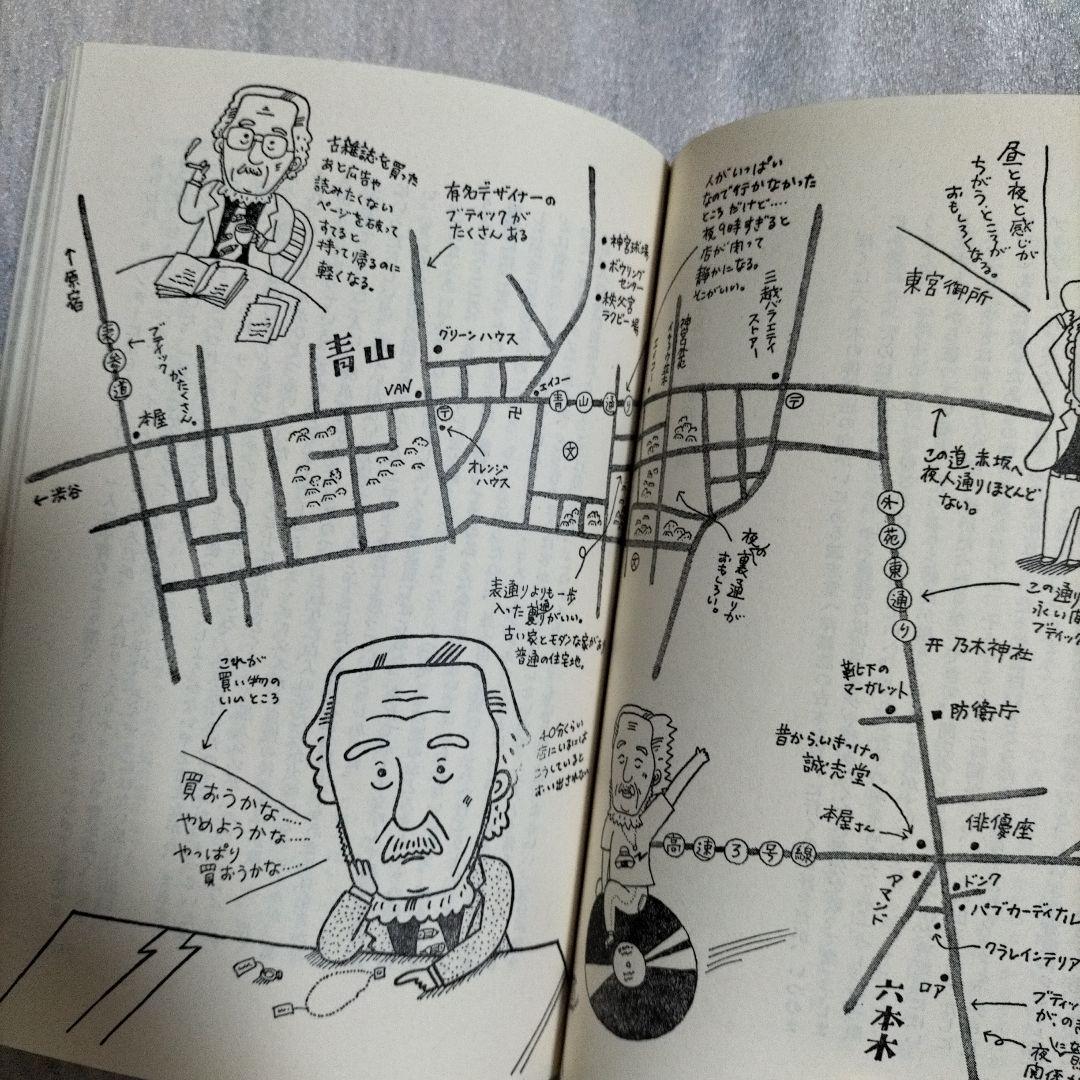 古雑誌を買った
あと広告や
読みたくない
ページを破って
すてると
持って帰るのに
軽くなる。
有名デザイナーの
ブティックが
たくさん ある
↑原宿
表参道
ブティック
がたくさん。
本屋
←渋谷
青山
グリーンハウス
VAN
〒
オレンジ
ハウス
エイコー
卍
青山通り
文
神宮球場
ボウリング
センター
秩父宮
ラクビー場
表通りよりも一歩
古い家とモダンな家が
普通の住宅地。
これが
買い物の
いいところ
買おうかな‥‥
やめようかな‥‥
やっぱり
買おうかな‥‥
40分くらい
店にいるには
こうしていると
おい出されない
人がいっぱい
なので行かなかった
ところだけど‥‥
夜9時すぎると
店が閉って
静かになる。
そこがいい。
三越バラエティ
ストアー
〒
文
夜の
裏通りが
おもしろい。
昼と夜と感じが
ちがうところが
おもしろくなる。
東宮御所
この道 赤坂へ
夜人通りほとんど
ない。
外苑東通り
この通り
永い
ブティック
乃木神社
靴下の
マーガレット
防衛庁
昔からいきつけの
誠志堂
本屋さん
俳優座
高速3号線
アマンド
ドンク
パブカーディナル
クラレインテリア
ロア
六本木
ブティッ
が、の
夜
関係